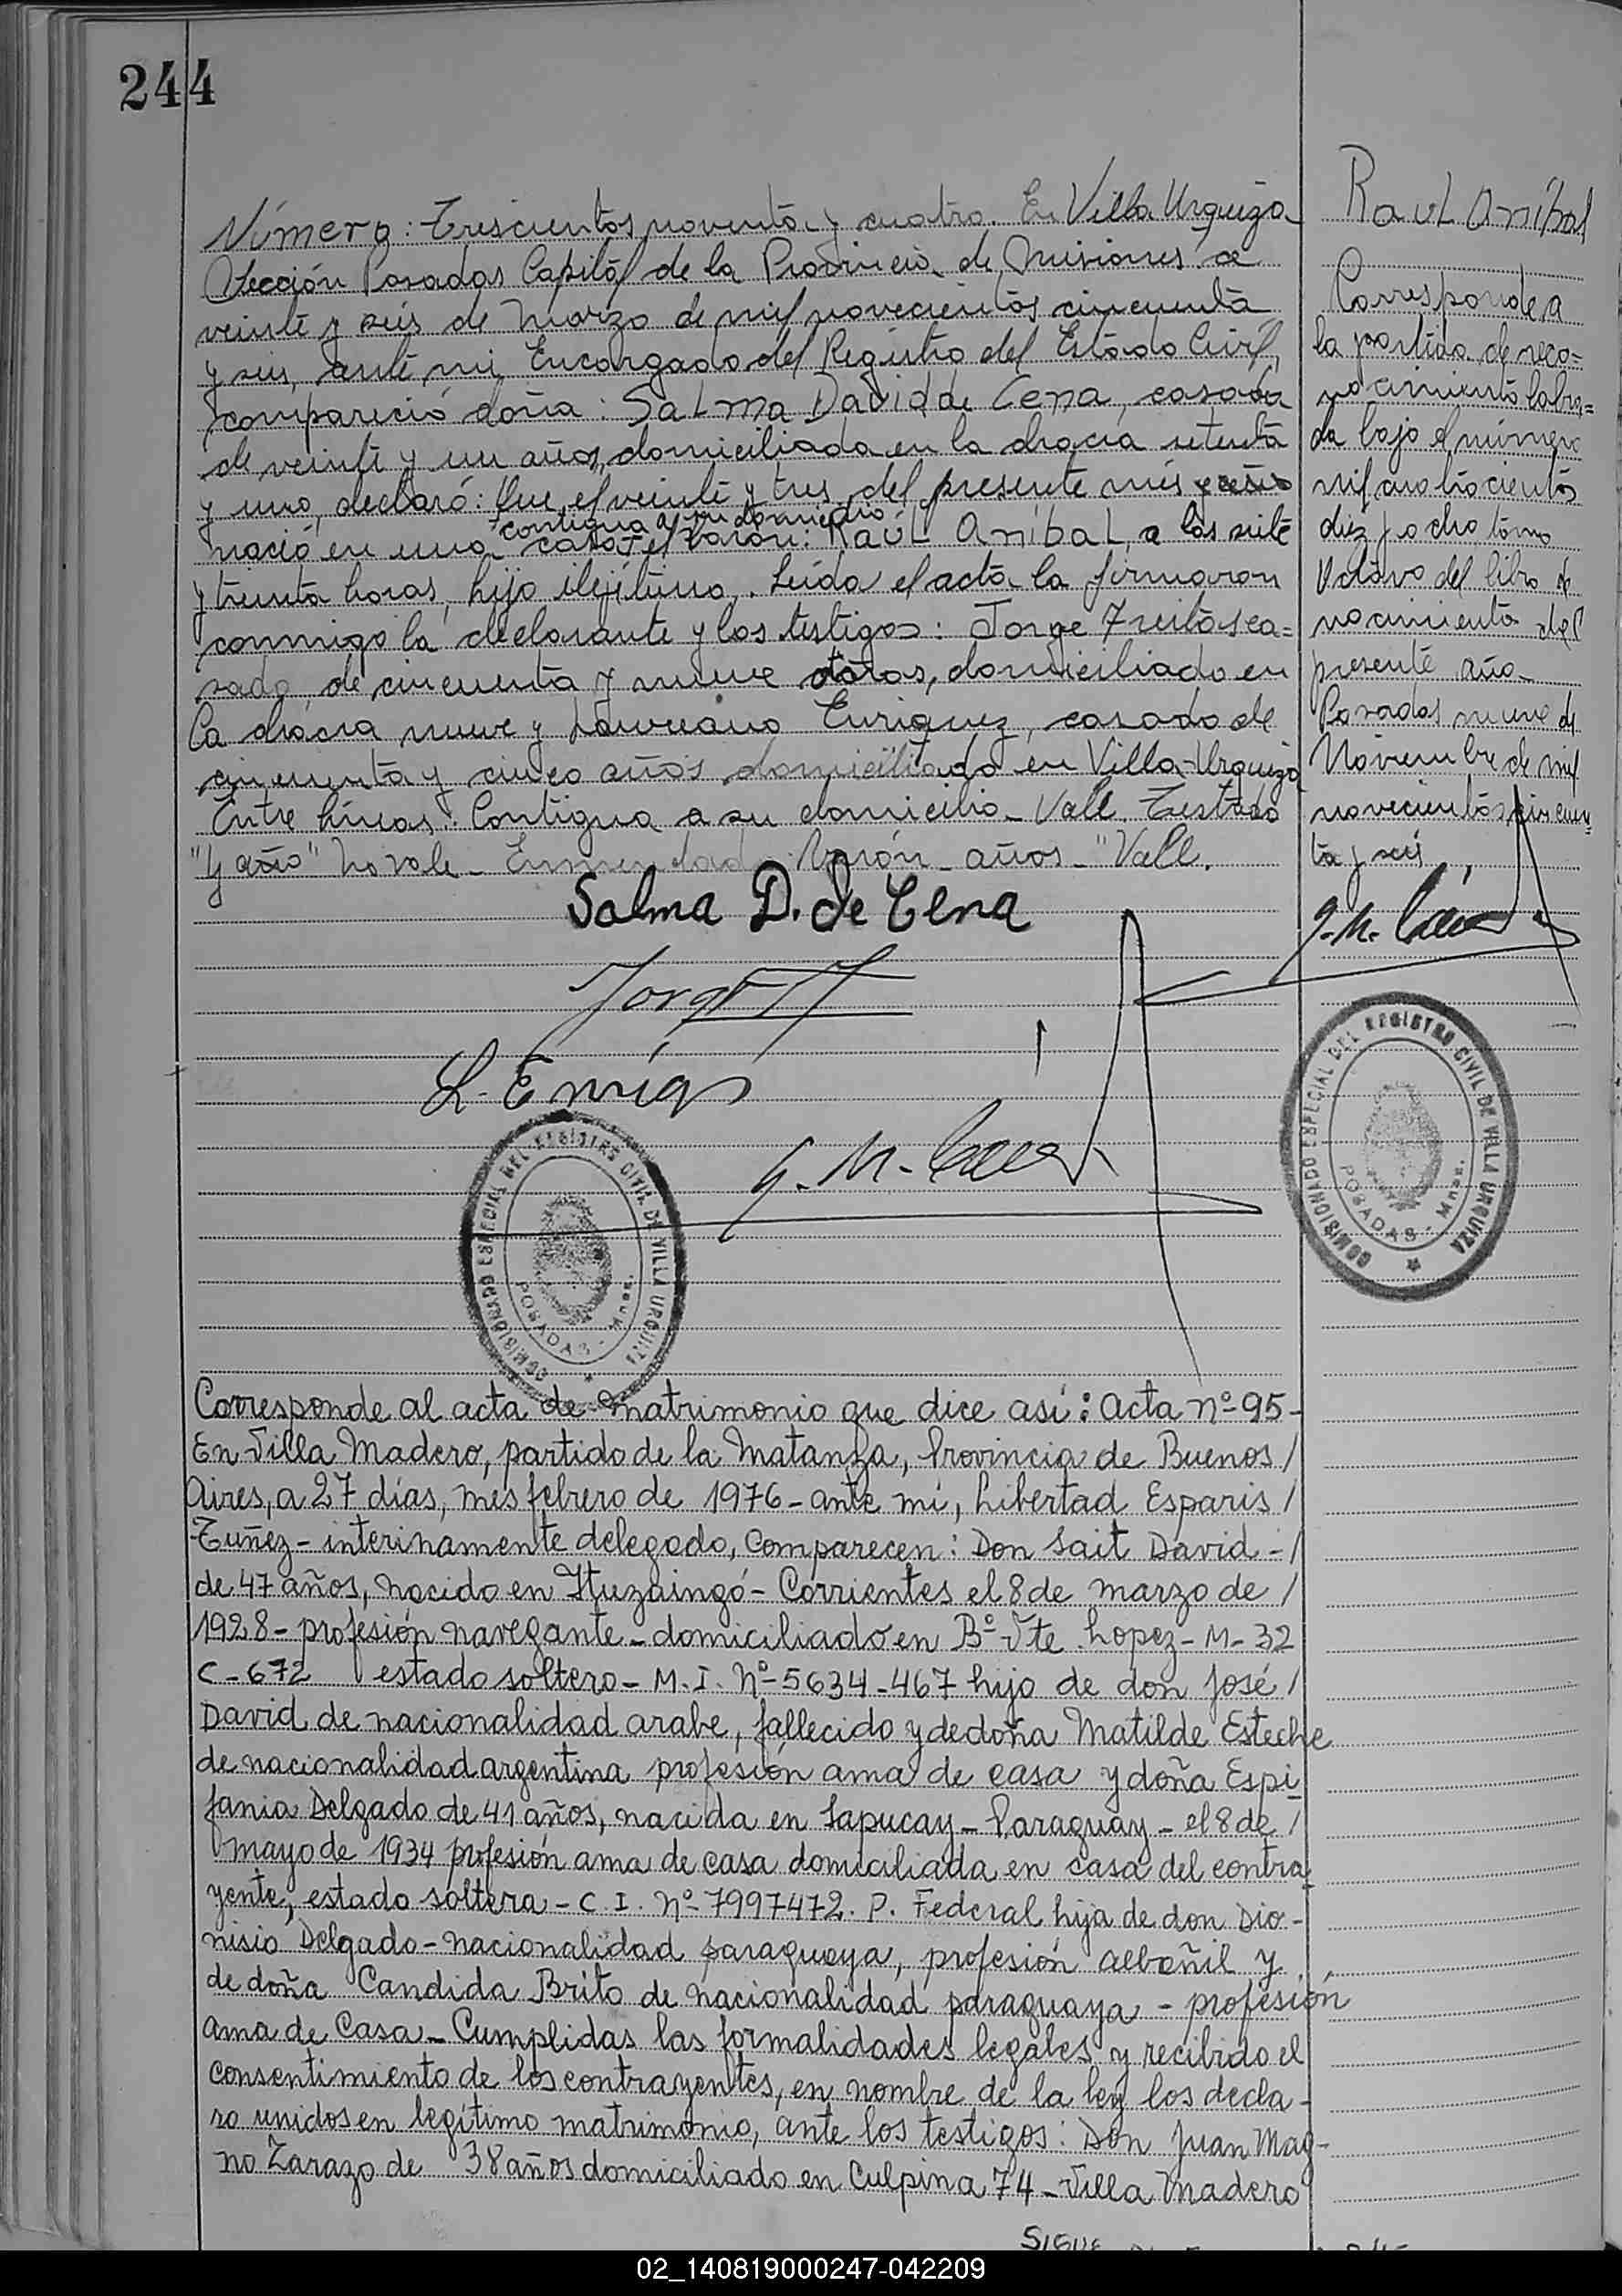 244
Número: Trescientos noventa y cuatro. En Villa Urquiza
Sección Posadas Capital de la Provincia de Misiones a
veinte y seis de Marzo de mil novecientos cincuenta
y seis, ante mi, Encargado del Registro del Estado Civil,
compareció doña: Salma David de Cena, casada
de veinte y un años, domiciliada en la chacra setenta
y uno, declaró: Que el veinte y tres del presente mes y año
contigua a su domicilio
nació en una casa el varón: Raúl Aníbal, a las siete
y treinta horas, hijo ilejitimo. Leida el acta la firmaron
conmigo la declarante y los testigos: Jorge Freitas ca=
sado, de cincuenta y nueve años, domiciliado en
la chacra nueve y Laureano Enriquez, casado de
cincuenta y cinco años domiciliado en Villa Urquiza
Entre líneas: Contigua a su domicilio - Vale. Testado
"y año" no vale - Enmendado: Varón - años - "Vale.
Salma D. de Cena
Jorge F
L. Enriq
G. M.
COMISIONADO ESPECIAL DEL REGISTRO CIVIL DE VILLA URQUIZA
POSADAS - Mnes.
Raúl Aníbal
Corresponde a
la partida de reco=
nocimiento labra=
da bajo el número
mil cuatrocientos
diez y ocho tomo
Octavo del libro de
nacimiento del
presente año -
Posadas nueve de
Noviembre de mil
novecientos cincuen=
ta y seis
G. M.
COMISIONADO ESPECIAL DEL REGISTRO CIVIL DE VILLA URQUIZA
POSADAS - Mnes.
Corresponde al acta de matrimonio que dice así: Acta nº 95 -
En Villa Madero, partido de la Matanza, Provincia de Buenos /
Aires, a 27 días, mes febrero de 1976 - ante mí, Libertad Esparis /
Tuñez - interinamente delegado, Comparecen: Don Sait David - /
de 47 años, nacido en Ituzaingó - Corrientes el 8 de marzo de /
1928 - profesión navegante - domiciliado en Bº Vte Lopez - M - 32
C - 672 estado soltero - M. I. Nº 5634-467 hijo de don José /
David de nacionalidad arabe, fallecido y de doña Matilde Esteche
de nacionalidad argentina profesión ama de casa y doña Espi
fania Delgado de 41 años, nacida en Sapucay - Paraguay - el 8 de /
mayo de 1934 profesión ama de casa domiciliada en casa del contra
yente, estado soltera - C. I. Nº 7997472. P. Federal hija de don Dio -
nisio Delgado - nacionalidad paraguaya, profesión albañil y
de doña Candida Brito de nacionalidad paraguaya - profesión
ama de Casa - Cumplidas las formalidades legales y recibido el
consentimiento de los contrayentes, en nombre de la ley los decla -
ro unidos en legítimo matrimonio, ante los testigos: Don Juan Mag -
no Zarazo de 38 años domiciliado en Culpina 74 - Villa Madero
SIGUE
02_140819000247-042209